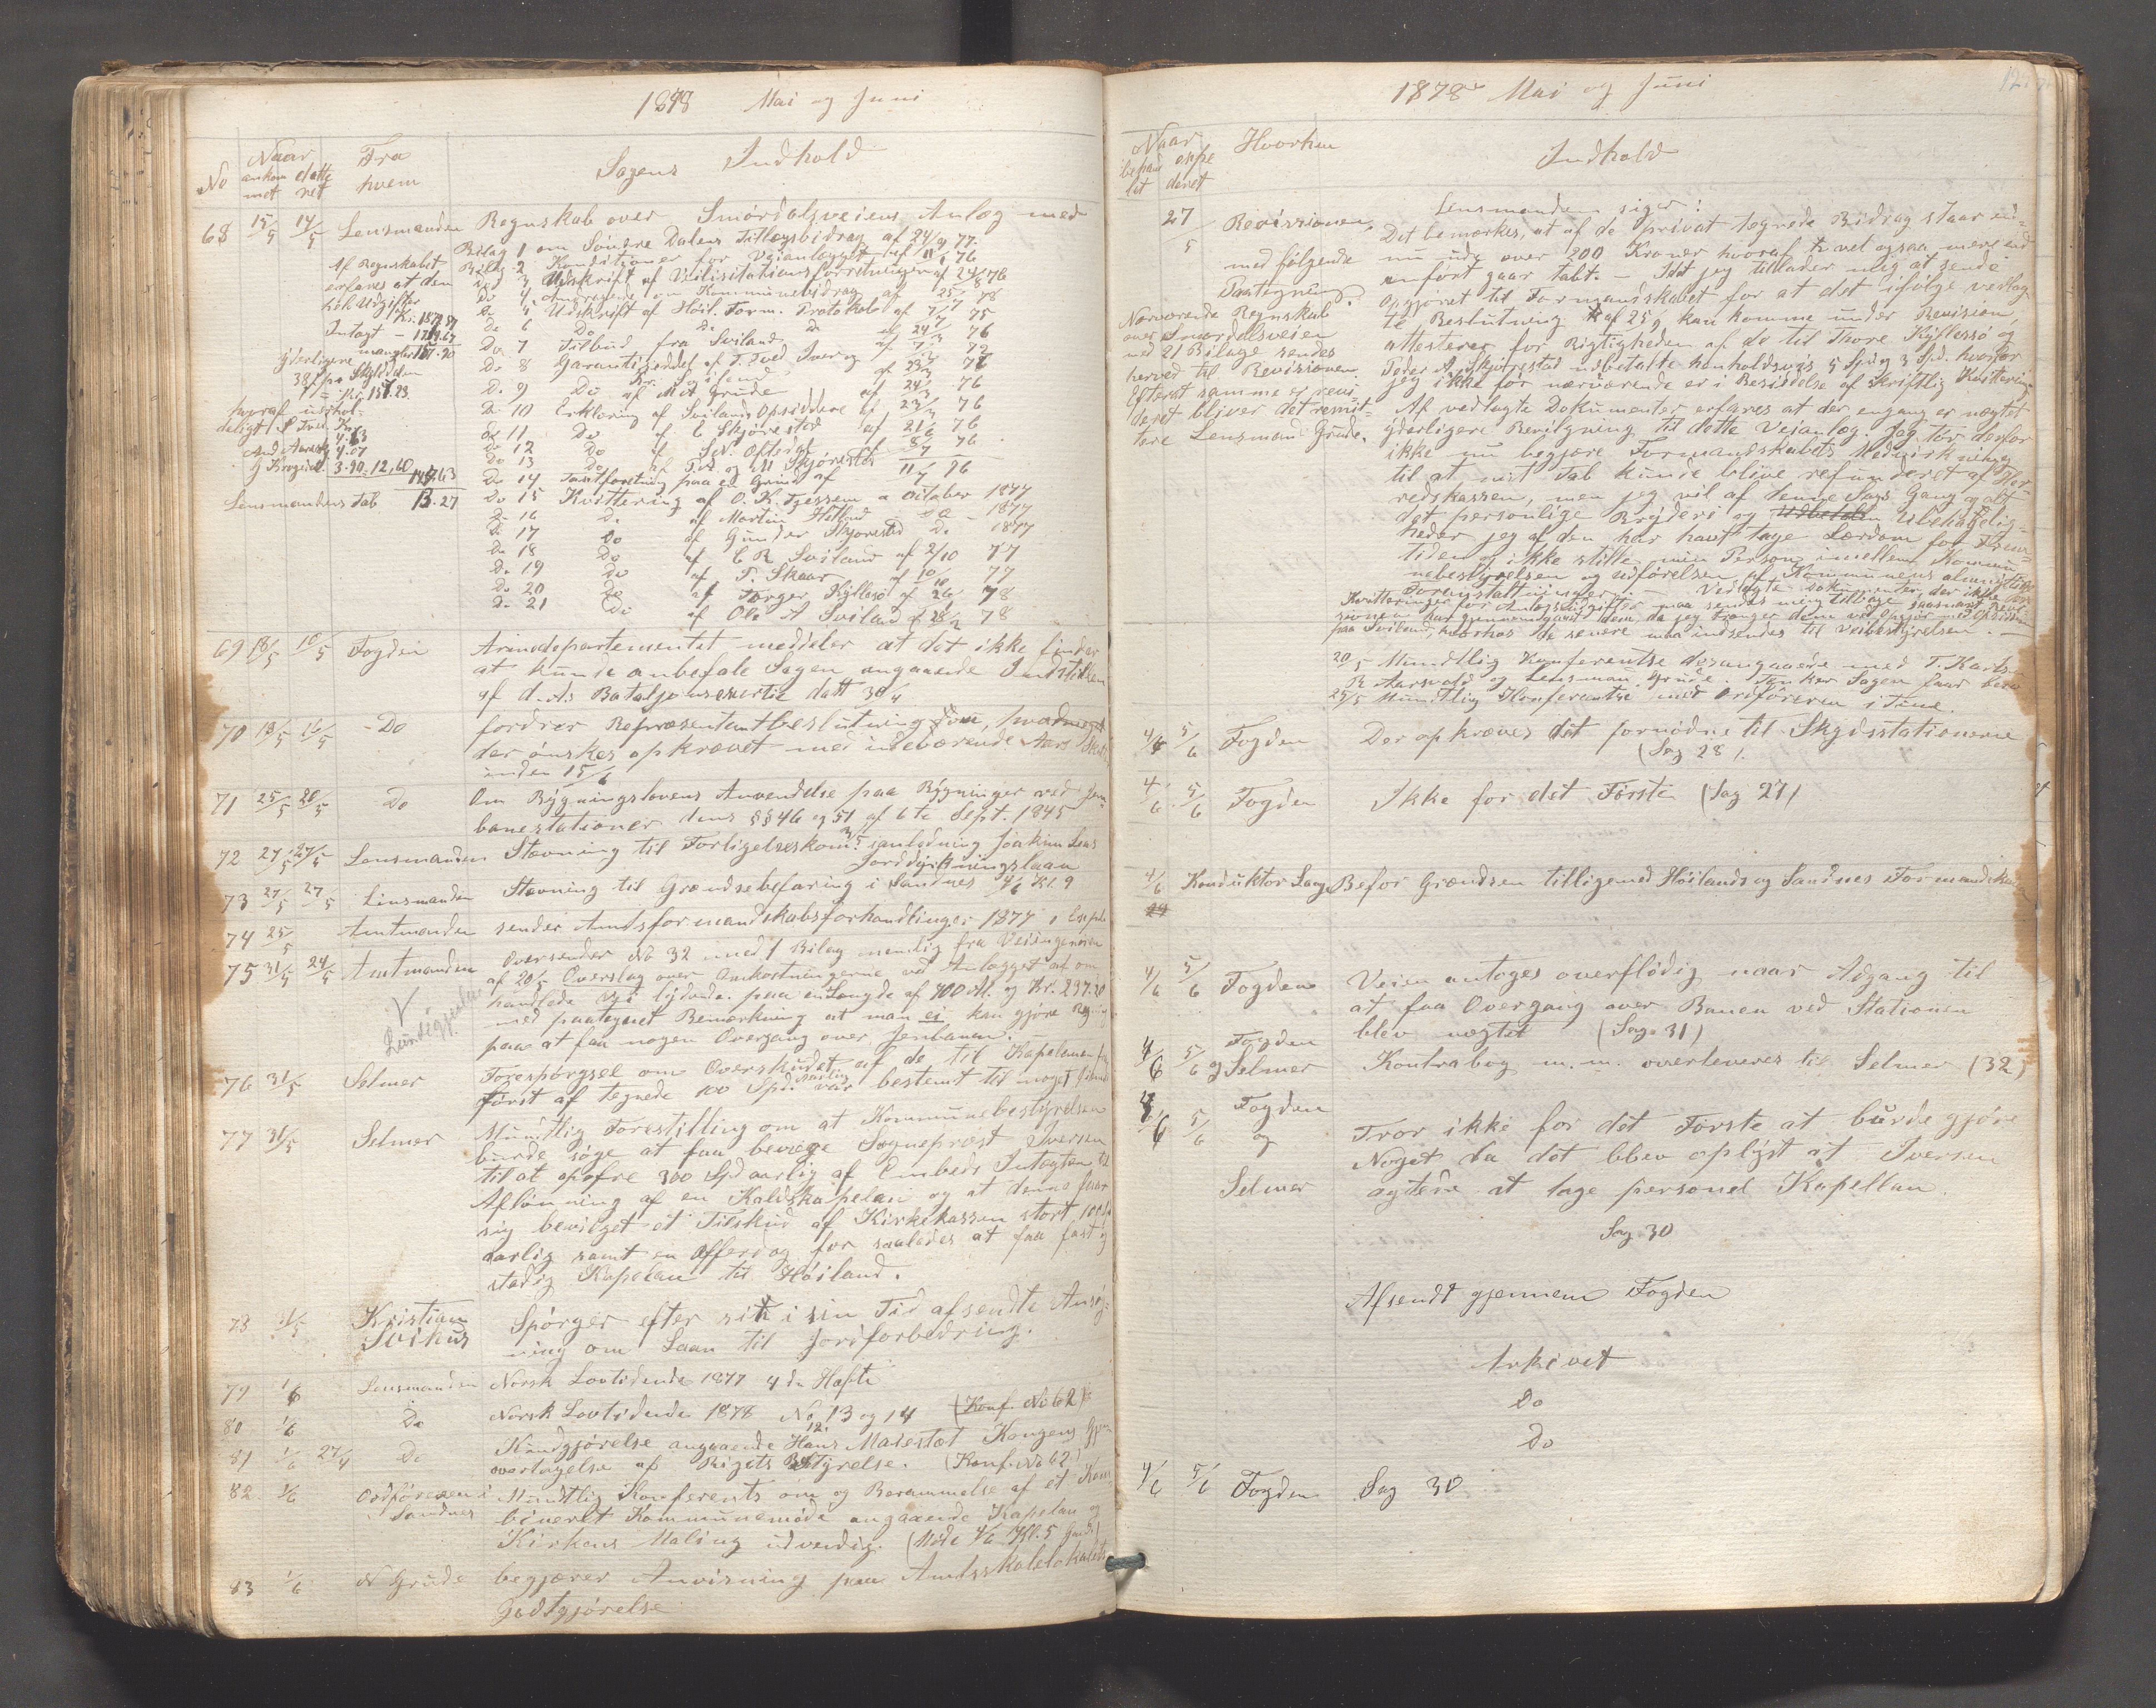 1878 Mai og Juni
No
Naar
ankom
met
datte
ret
Fra
hvem
Sagens Indhold
68 15/5 14/5 Lensmanden Regnskab over Smørdalsveiens Anlæg med
Bilag 1 om Søndre Dalens Tillægsbidrag af 24/9 77.
Bilag 2 Konditioner for Veianlægget af 11/1 76
Do 3 Udskrift af Veilisitationsforretningen af 24/8 76
Do 4 Andragende om Kommunebidrag af 25/ 78
Do 5 Udskrift af Høil. Form. Protokol af 7/7 75
Do 6 Do Do Do af 24/ 76
Do 7 Tilbud fra Sviland af 7/3 76
Do 8 Garantiseddel af T. Tved, Iver og af 23/3 76
Do 9 Do af M A Grude af 24/3 76
Do 10 Erklæring af Svilands Opsiddere af 23/3 76
Do 11 Do af E Skjørestad af 21/ 76
Do 12 Do af Sev. Oftedal af 8/7 76
Do 13 Do af T. A og M Skjørestad
Do 14 Tautforetning paa en Grind af 11/7 76
Do 15 Kvittering af O. K. Tjessem a Octaber 1877
Do 16 Do af Martin Hetland Do 1877
Do 17 Do af Gunder Skjørestad Do 1877
Do 18 Do af E R Sviland af 2/10 77
Do 19 Do af T. Skaar af 10/10 77
Do 20 Do af Torger Kyllesø af 26/ 78
Do 21 Do af Ole A Sviland af 28/2 78
Af Regnskabet
erfares at den
hele Udgifter
Kr. 1870.87
Intægt – 1713.67
mangler 157.20
yderligere
38 pr Skylddalen
= Kr. 157.23
hvoraf uerhol-
deligt S. Tved. Kr.
4.63
And Aarsvold 4.07
G Krogedal. 3.90 = 12,60
144.63
Lensmandens Tab 13.27
69 18/5 16/5 Fogden Armedepartementet meddeler at det ikke finder
at kunde anbefale Sagen angaaende Indstillen
af d. A's Bataljonsexersis datt 30/4
70 18/5 16/5 – Do fordrer Repræsentantbeslutning om, hvad meget
der ønskes opkrævet med indeværende Aars Skat
inden 15/6
71 25/5 20/5 Do Om Bygningslovens Anvendelse paa Bygninger ved Jern-
banestationer dens §§ 46 og 51 af 6te Sept. 1845
72 27/5 27/5 Lensmanden Stævning til Forligelseskom. 3/5 ianledning Joakim Lens
Jorddyrkningslaan
73 27/5 27/5 Lensmanden Stævning til Grændsebefaring i Sandnes 4/6 Kl. 9
74 25/5 Amtmanden sender Amtsformandskabsforhandlinger 1877, 1 Exepl.
75 31/5 24/5 Amtmanden Oversender No 32 med 1 Bilag nemlig fra Veiingeniøren
af 20/5 Overslag over Omkostningerne ved Anlægget af om
handlede Vei lydende paa en Længde af 700 Al. og Kr. 237.20
med paategnet Bemærkning at man ei kan gjøre Regning
paa at faa nogen Overgang over Jernbanen.
V
76 31/5 Selmer Forespørgsel om Overskudet af de til Kapelanen
først af tegnede 100 Spd. aarlig var bestemt til noget
77 31/5 Selmer Mundtlig Forestilling om at Kommunebestyrelsen
burde søge at faa bevæge Sogneprest Iversen
til at opofre 300 Spd aarlig af Embeds Intægten til
Aflønning af en Kaldskapelan og at denne faar
sig bevilget et Tilskud af Kirkekassen stort 100
aarlig samt en Offerdag for saaledes at faa fast og
stadig Kapelan til Høiland.
78 31/5 Kristian
Spørger efter sit i sin Tid afsendte Ansøg-
ning om Laan til Jordforbedring.
79 1/6 Lensmanden Norsk Lovtidende 1877 4de Hæfte
80 1/6 Do Norsk Lovtidende 1878 No 12, 13 og 14 (Konf. No 62)
81 1/6 27/4 Do Kundgjørelse angaaende Hans Majestæt Kongens Gjen
overtagelse af Rigets Bestyrelse. (Konf. No 62)
82 1/6 Ordføreren i
Sandnes
Mundtlig Konferents om og Berammelse af et Kom-
bineret Kommunemøde angaaende Kapelan og
Kirkens Maling udvendig. (Møde 4/6 Kl. 5
83 1/6 N Grude begjærer Anvisning paa Amtsskolelokalets
Godtgjørelse
1878 Mai og Juni
Naar
behand
let
expe
deret
Hvorhen
Indhold
27/5 Revisionen
med følgende
Paategning.
Nærværende Regnskab
over Smørdalsveien
med 21 Bilage sendes
herved til Revisionen.
Efterat samme er revi-
deret bliver det remit-
tere Lensmand Grude.
Lensmanden siger:
Det bemærkes, at af de privat tegnede Bidrag staar end-
nu ude over 200 Kroner hvoraf tr vel ogsaa mere end
anført gaar tabt. – Idet jeg tillader mig at sende
opgjøret til Formandskabet for at det ifølge vedtag
te Beslutning af 25/ kan komme under Revision,
attesterer for Rigtigheden af de til Thore Kyllesø og
Peder A Skjørestad udbetalte henholdsvis 5 Spd og 3 Spd. hvorfor
jeg ikke for nærværende er i Besiddelse af skriftlig Kvittering
Af vedlagte Dokumenter erfares at der engang er nægtet
yderligere Bevilgning til dette Veianlæg. Jeg tør derfor
ikke nu begjøre Formandskabets Medvirkning
til at mit Tab kunde blive refunderet af Her-
redskassen, men jeg vil af denne Sags Gang og alt
det personlige Bryderi og Ubehagelig-
heder jeg af den har havt tage Lærdom for Frem-
tiden og ikke stille min Person imellem Kommu-
nebestyrelsen og Udførelsen af Kommunens almindelige
Foranstaltninger. – Vedlagte Dokumenter, der ikke er
Kvitteringer for Anlægsudgifter maa sendes mig tilbage saasnart Revi-
sionen har gjennemgaaet dem, da jeg trænger dem ved Opgjør med Opsiddere
paa Sviland, hvorhos de senere maa indsendes til Veibestyrelsen. –
20/5 Mundtlig Konferentse desangaaende med T. Karls
R. Aarsvold og Lensmand Grude. Tænker Sagen faar bero
25/5 Mundtlig Konferentse med Ordføreren i Time.
4/6 5/6 Fogden Der opkræves det fornødne til Skydsstationerne
(Sag 28).
4/6 5/6 Fogden Ikke for det Første (Sag 27)
4/6 Konduktør Lange Befor Grændsen tilligemed Høilands og Sandnes Formandskab
4/6 5/6 Fogden Veien antages overflødig naar Adgang til
at faa Overgang over Banen ved Stationen
blev nægtet (Sag 31)
4/6 5/6 Fogden
og Selmer Kontrabog m. m. overleveres til Selmer (32)
4/6 5/6 Fogden
og
Selmer
Tror ikke for det Første at burde gjøre
Noget da det blev oplyst at Iversen
agtede at tage personel Kapellan.
Sag 30
Afsendt gjennem Fogden
Arkivet
Do
Do
4/6 5/6 Fogden Sag 30